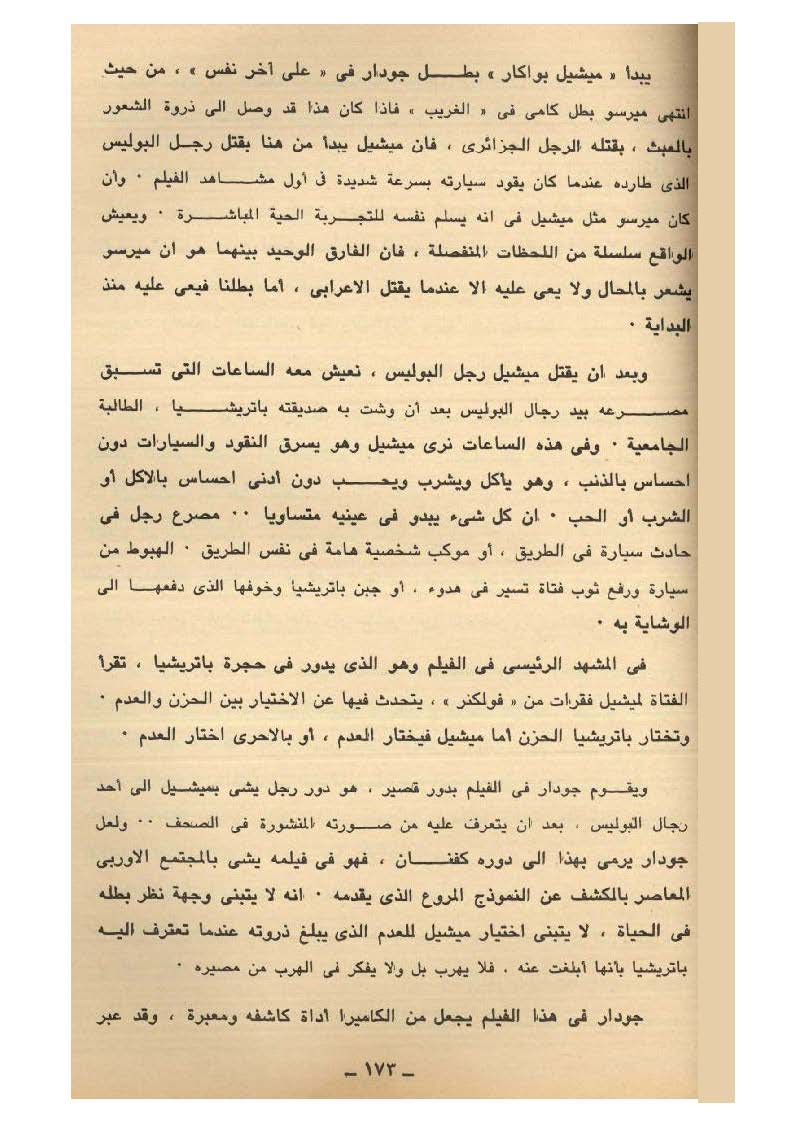 يبدأ « ميشيل بواكار » بطـــل جودار فى « على آخر نفس » ، من حيث
انتهى ميرسو بطل كامى فى « الغريب » فاذا كان هذا قد وصل الى ذروة الشعور
بالعبث ، بقتله الرجل الجزائرى ، فان ميشيل يبدأ من هنا بقتل رجـل البوليس
الذى طارده عندما كان يقود سيارته بسرعة شديدة فى أول مشـــاهد الفيلم ٠ وأن
كان ميرسو مثل ميشيل فى انه يسلم نفسه للتجـربة الحية المباشـــرة ٠ ويعيش
الواقع سلسلة من اللحظات المنفصلة ، فان الفارق الوحيد بينهما هو أن ميرسو
يشعر بالمحال ولا يعى عليه الا عندما يقتل الاعرابى ، أما بطلنا فيعى عليه منذ
البداية ٠
وبعد ان يقتل ميشيل رجل البوليس ، نعيش معه الساعات التى تســـبق
مصـــرعه بيد رجال البوليس بعد أن وشت به صديقته باتريشـــيا ، الطالبة
الجامعية ٠ وفى هذه الساعات نرى ميشيل وهو يسرق النقود والسيارات دون
احساس بالذنب ، وهو يأكل ويشرب ويحـــب دون أدنى احساس بالاكل أو
الشرب أو الحب ٠ ان كل شىء يبدو فى عينيه متساويا ٠٠ مصرع رجل فى
حادث سيارة فى الطريق ، أو موكب شخصية هامة فى نفس الطريق ٠ الهبوط من
سيارة ورفع ثوب فتاة تسير فى هدوء ، أو جبن باتريشيا وخوفها الذى دفعهـا الى
الوشاية به ٠
فى المشهد الرئيسى فى الفيلم وهو الذى يدور فى حجرة باتريشيا ، تقرأ
الفتاة لميشيل فقرات من « فولكنر » ، يتحدث فيها عن الاختيار بين الحزن والعدم ٠
وتختار باتريشيا الحزن أما ميشيل فيختار العدم ، أو بالاحرى اختار العدم ٠
ويقـوم جودار فى الفيلم بدور قصير ، هو دور رجل يشى بميشـيل الى أحد
رجال البوليس ، بعد ان يتعرف عليه من صـورته المنشورة فى الصحف ٠٠ ولعل
جودار يرمى بهذا الى دوره كفنـــان ، فهو فى فيلمه يشى بالمجتمع الاوربى
المعاصر بالكشف عن النموذج المروع الذى يقدمه ٠ انه لا يتبنى وجهة نظر بطله
فى الحياة ، لا يتبنى اختيار ميشيل للعدم الذى يبلغ ذروته عندما تعترف اليـه
باتريشيا بأنها أبلغت عنه ، فلا يهرب بل ولا يفكر فى الهرب من مصيره ٠
جودار فى هذا الفيلم يجعل من الكاميرا أداة كاشفه ومعبرة ، وقد عبر
ــ ١٧٣ ــ